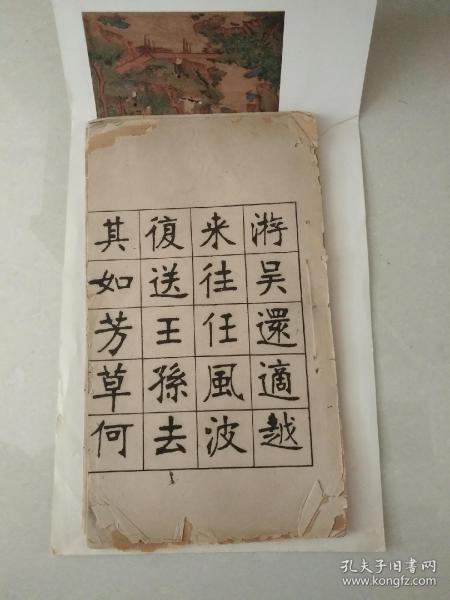 游吴還適越
来往任風波
復送王孫去
其如芳草何
孔夫子旧书网
www.kongfz.com